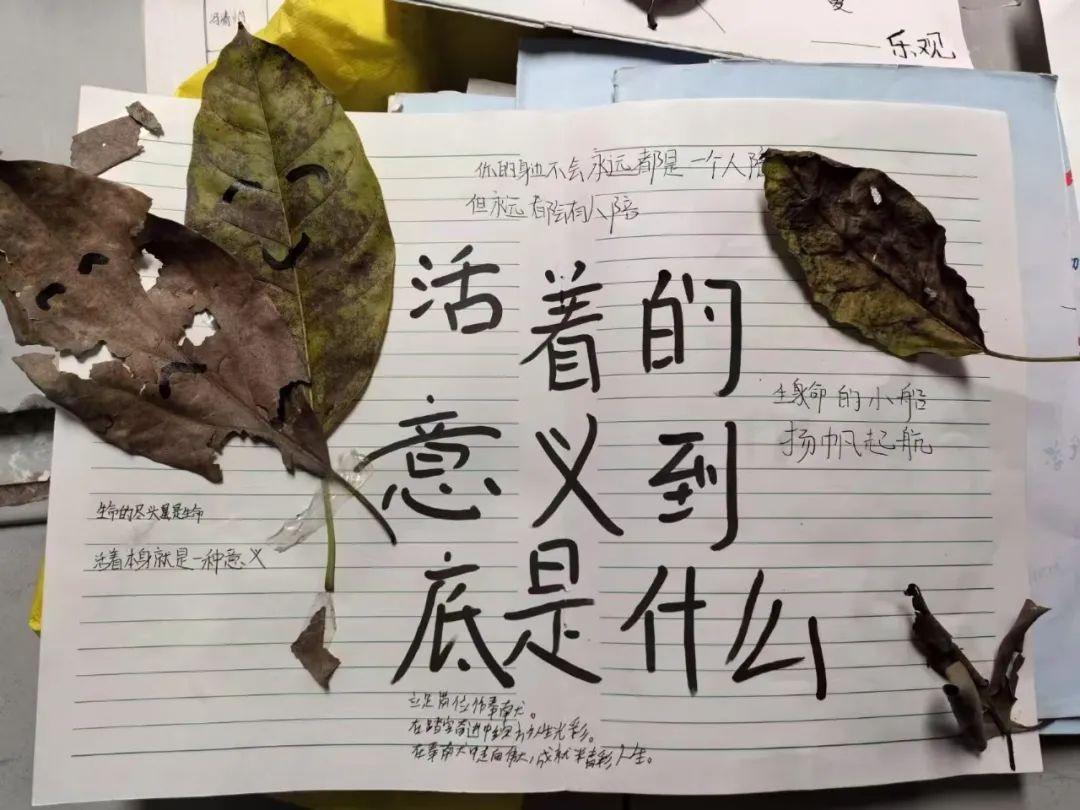 ——乐观
你的身边不会永远都是一个人陪
但永远都会有人陪
活着的
意义到
底是什么
生命的小船
扬帆起航
生命的尽头是生命
活着本身就是一种意义
立足岗位作奉献。
在踏实奋进中绽放人生光彩。
在奉献中走向伟大，成就精彩人生。